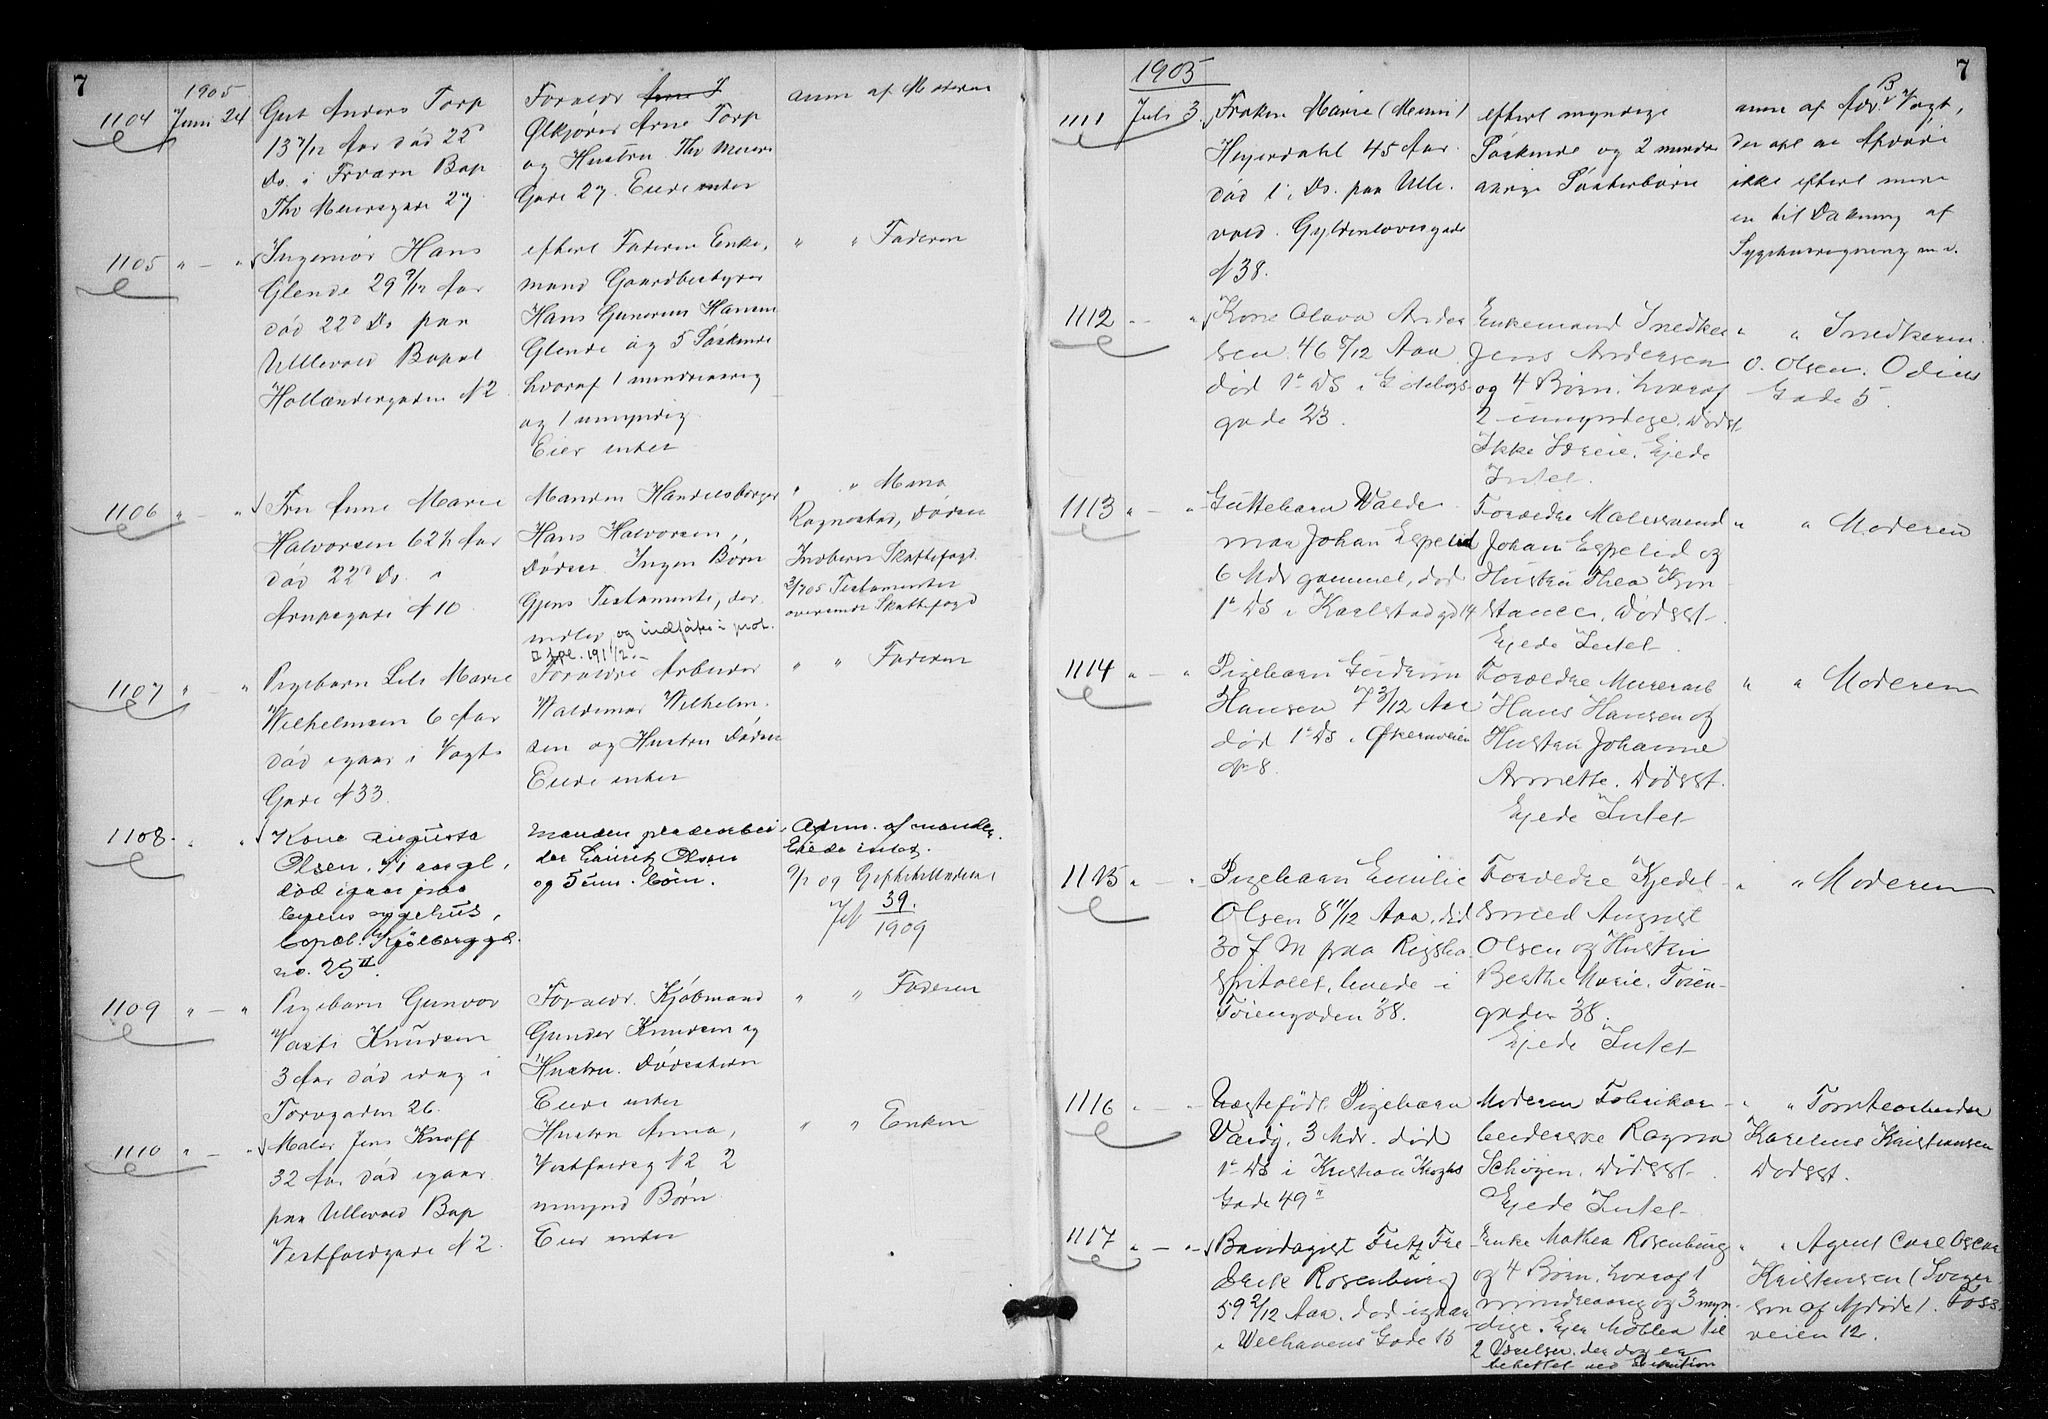 7
1905
1104 Juni 24 Gut Anders Torp
13 7/12 Aar død 22d
Ds. i Bop
Thv Meiersgade 27
Forældr
Ølkjører Arne Torp
og Hustru Thv Meiers
Gade 27. Eiede intet
anm af Moderen
1105 " — " Ingeniør Hans
Glende 29 9/12 Aar
død 22d Ds paa
Ullevold Bopæl
Hollændergaden N 2
efterl Faderen Enke-
mand Gaardbestyrer
Hans Gunerius Hansen
Glende og 5 Søskende
hvoraf 1 mindreaarig
og 1 umyndig
Eier intet
" " Faderen
1106 " — " Fru Anne Marie
Halvorsen 62 1/2 Aar
død 22d Ds. i
Arupsgade N 10
Manden Handelsborger
Hans Halvorsen,
Dødsst. Ingen Børn
Gjens Testamente, der
og indføres i prot.
" "
Rognestad, Dødsst
Indberu Skattefogd
3/7 05 Testamentet
oversendt Skattefogd
1107 " — " Pigebarn Lili Marie
Wilhelmsen 6 Aar
død igaar i Vogts
Gade N 33
Forældre Arbeider
Waldemar Wilhelm-
sen og Hustru Dødsst
Eiede intet
" " Faderen
1108 " " Kone Augusta
Olsen, 41 aar gl.
død igaar paa
byens sygehus,
bopæl. Kjølberggd.
no. 25 II.
Manden pladearbei-
der Lauritz Olsen
og 5 um. børn.
Anm. af manden.
Eiede intet.
39.
1909
1109 " — " Pigebarn Gunvor
Vasti Knudsen
3 Aar død idag i
Torvgaden 26.
Forældr. Kjøbmand
Gunder Knudsen og
Hustru. Dødsstedn
Eiede intet
" " Faderen
1110 " — " Maler Jens Knoff
32 Aar død igaar
paa Ullevold Bop
Vestfoldgade N 2.
Hustru Anna,
Vestfoldg N 2 2
umynd Børn
Eier intet
" " Enken
7
1905
1111 Juli 3. Frøken Marie (Menni)
Heyerdahl 45 Aar
død 1. Ds. paa Ulle-
vold. Gyldenløvesgade
N 38.
efterl myndige
Søskende og 2 mindre
aarige Søsterbørn
anm af Adv. B Vogt,
der opl at Afdøde
ikke efterl mere
en til Dækning af
Sygehusregning m.v.
1112 " — " Kone Olava Ander
sen 46 5/12 Aar
død 1ste Ds i Gøteborgs
gade 23.
Enkemand Snedker
Jens Andersen
og 4 Børn, hvoraf
2 umyndige. Dødsst.
Ikke Særeie. Ejede
Intet.
" " Snedkerm.
O. Olsen. Odins
Gade 5.
1113 " — " Guttebarn Walde-
mar Johan Espelid
6 Mdr gammel, død
1ste Ds i Karlstadgd 14
Forældre Malersvend
Johan Espelid og
Hustru Thea Kon
stance. Dødsst.
Ejede Intet
" " Moderen
1114 " — " Pigebarn Gudrun
Hansen 7 3/12 Aar
død 1ste Ds. i Økernveien
No 8.
Forældre Murerarb
Hans Hansen og
Hustru Johanne
Annette. Dødsst.
Ejede Intet
" " Moderen
1115 " — " Pigebarn Emilie
Olsen 8 11/12 Aar. død
30 f. M paa Rigsho
spitalet, boede i
Tøiengaden 38.
Forældre Kjedel-
smed August
Olsen og Hustru
Berthe Marie. Tøien-
gaden 38.
Ejede Intet
" " Moderen
1116 " — " Uægtefødt Pigebarn
Vardy. 3 Mdr. død
1ste Ds i Kristian Kroghs
Gade 49 II
Moderen Fabrikar-
beiderske Ragna
Schøyen. Dødsst.
Ejede Intet
" " Tomtearbeider
Karelius Kristiansen
Dødsst.
1117 " — " Bandagist Fritz Fre
derik Rosenburg
59 2/12 Aar. død igaar
i Welhavens Gade 15
Enke Mathea Rosenburg
og 4 Børn. hvoraf 1
mindreaarig og 3 myn
dige. Ejer Møbler til
2 Værelser, der dog er
beheftet ved Exekution
" " Agent Carl Oscar
Kristensen (Sviger
søn af Afdøde). Foss
veien 12.